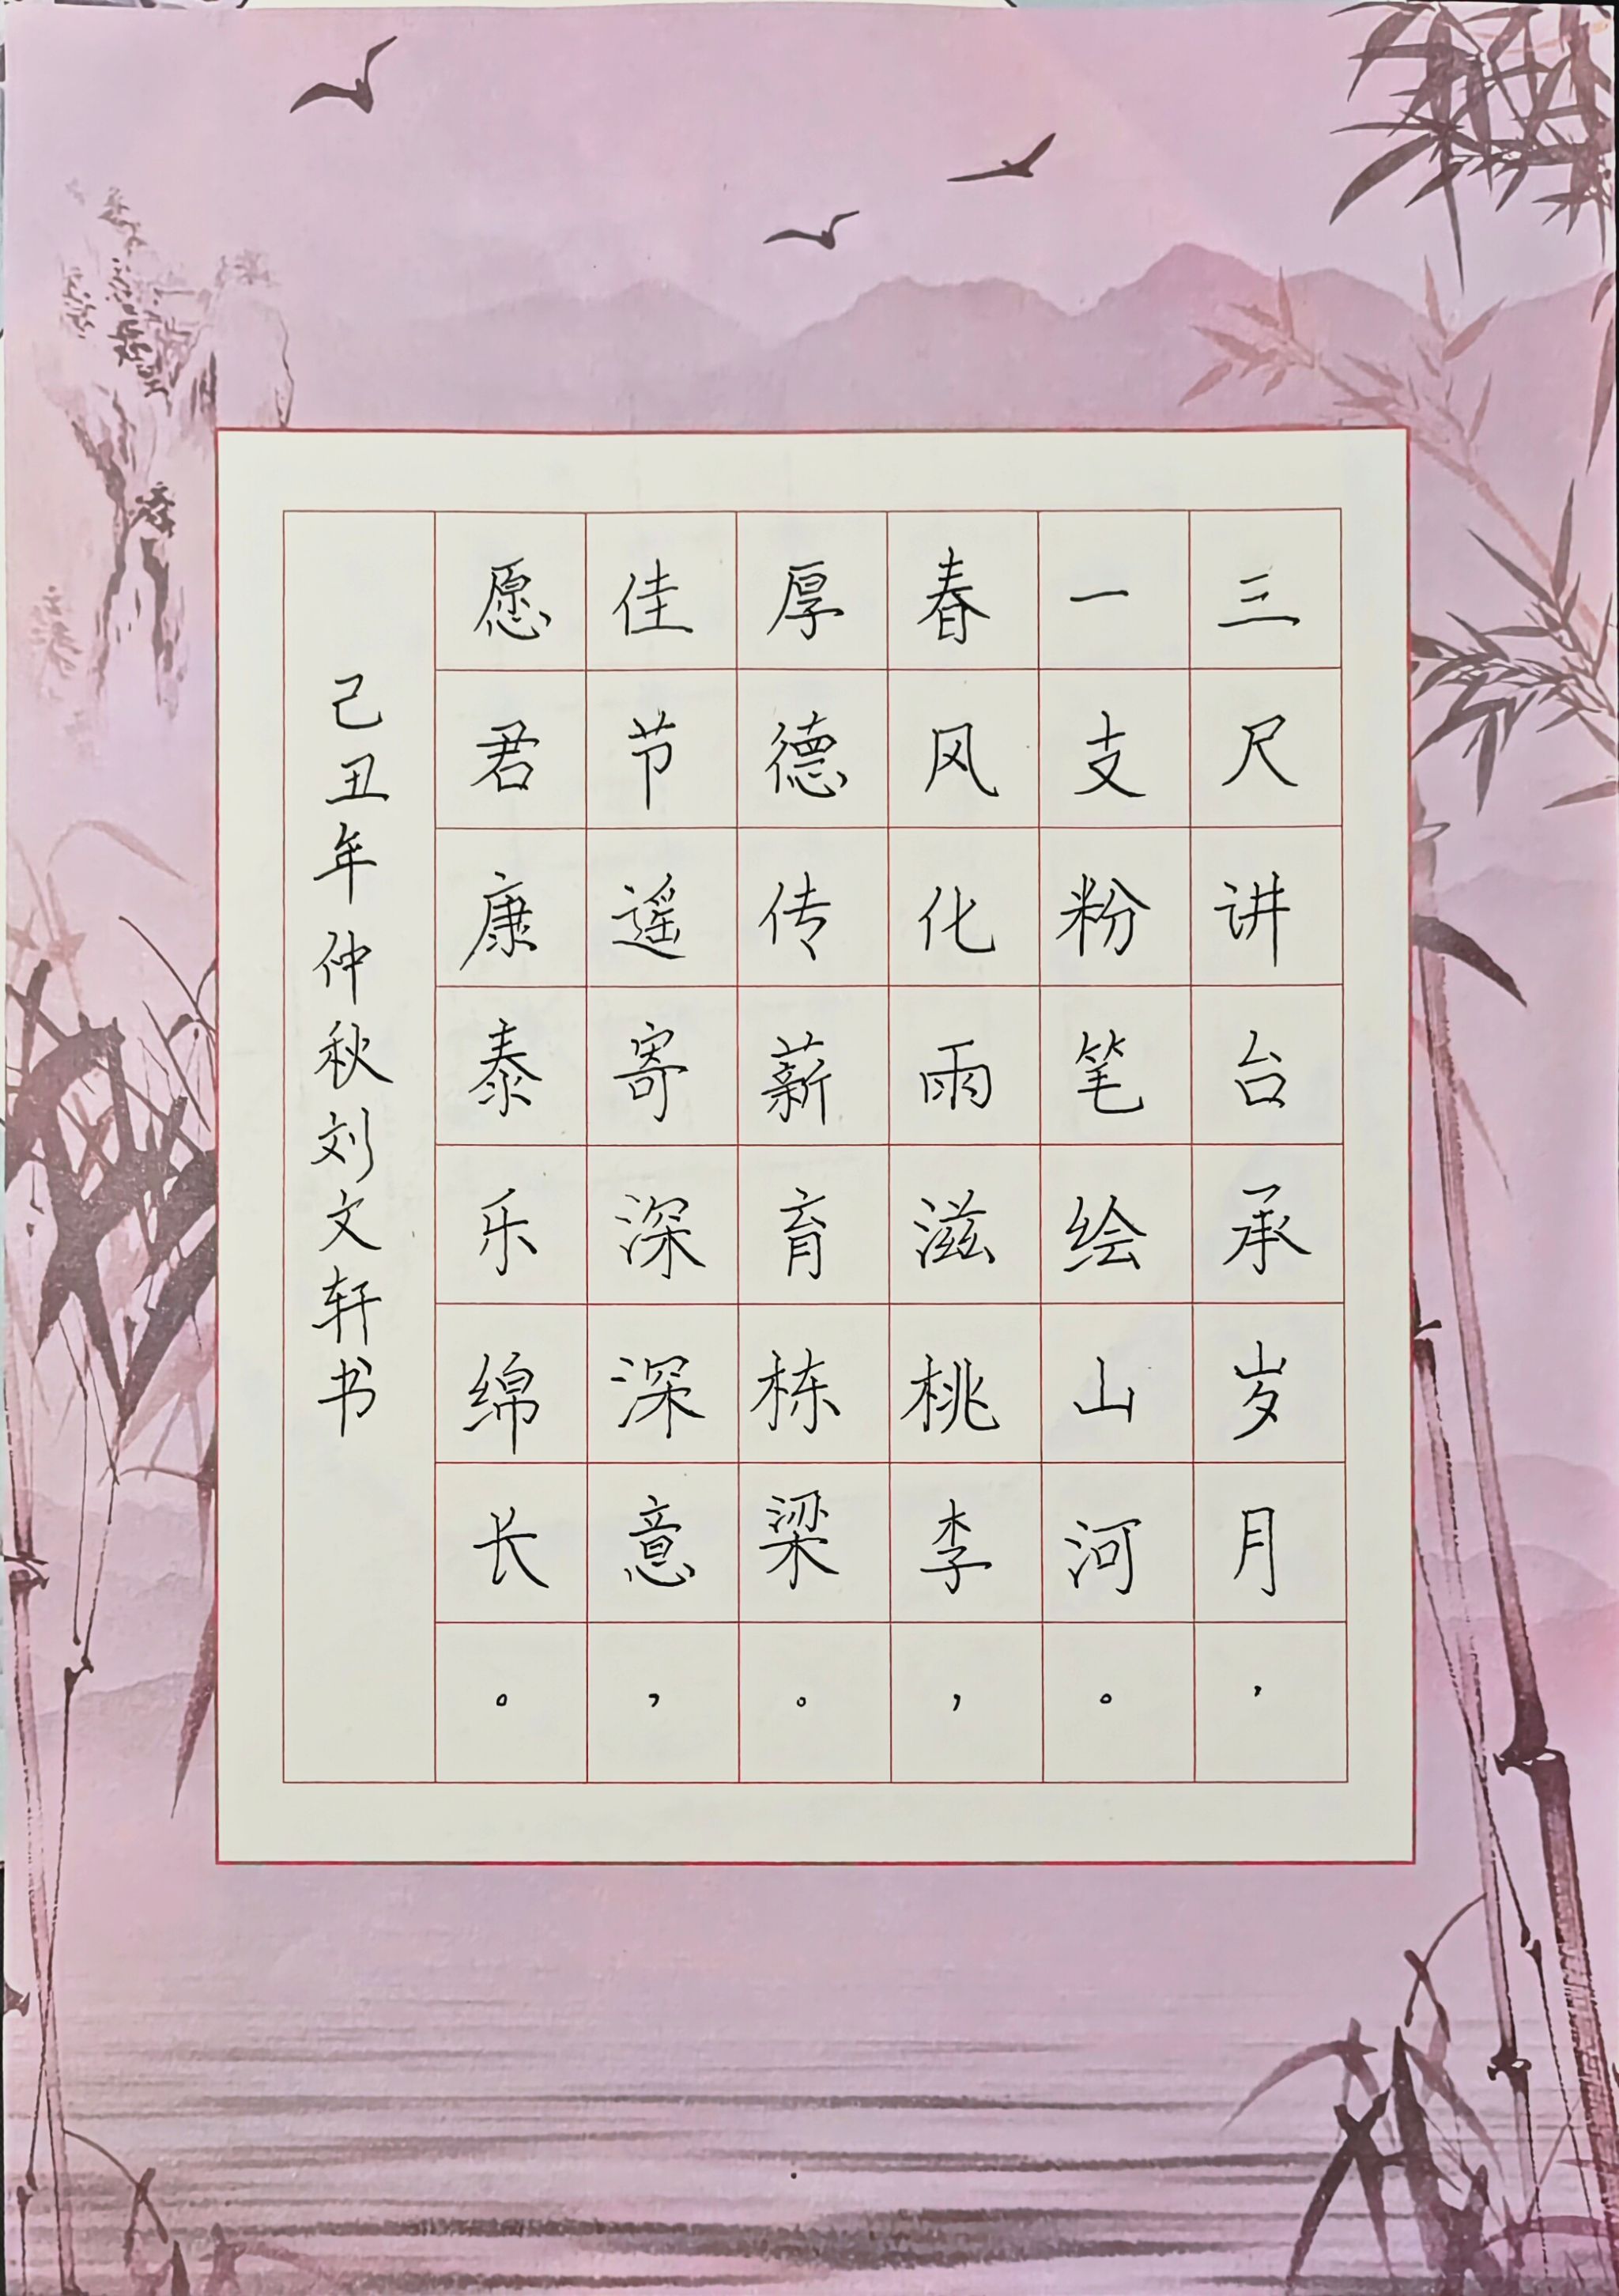 三尺讲台承岁月，
一支粉笔绘山河。
春风化雨滋桃李，
厚德传薪育栋梁。
佳节遥寄深深意，
愿君康泰乐绵长。
己丑年仲秋刘文轩书